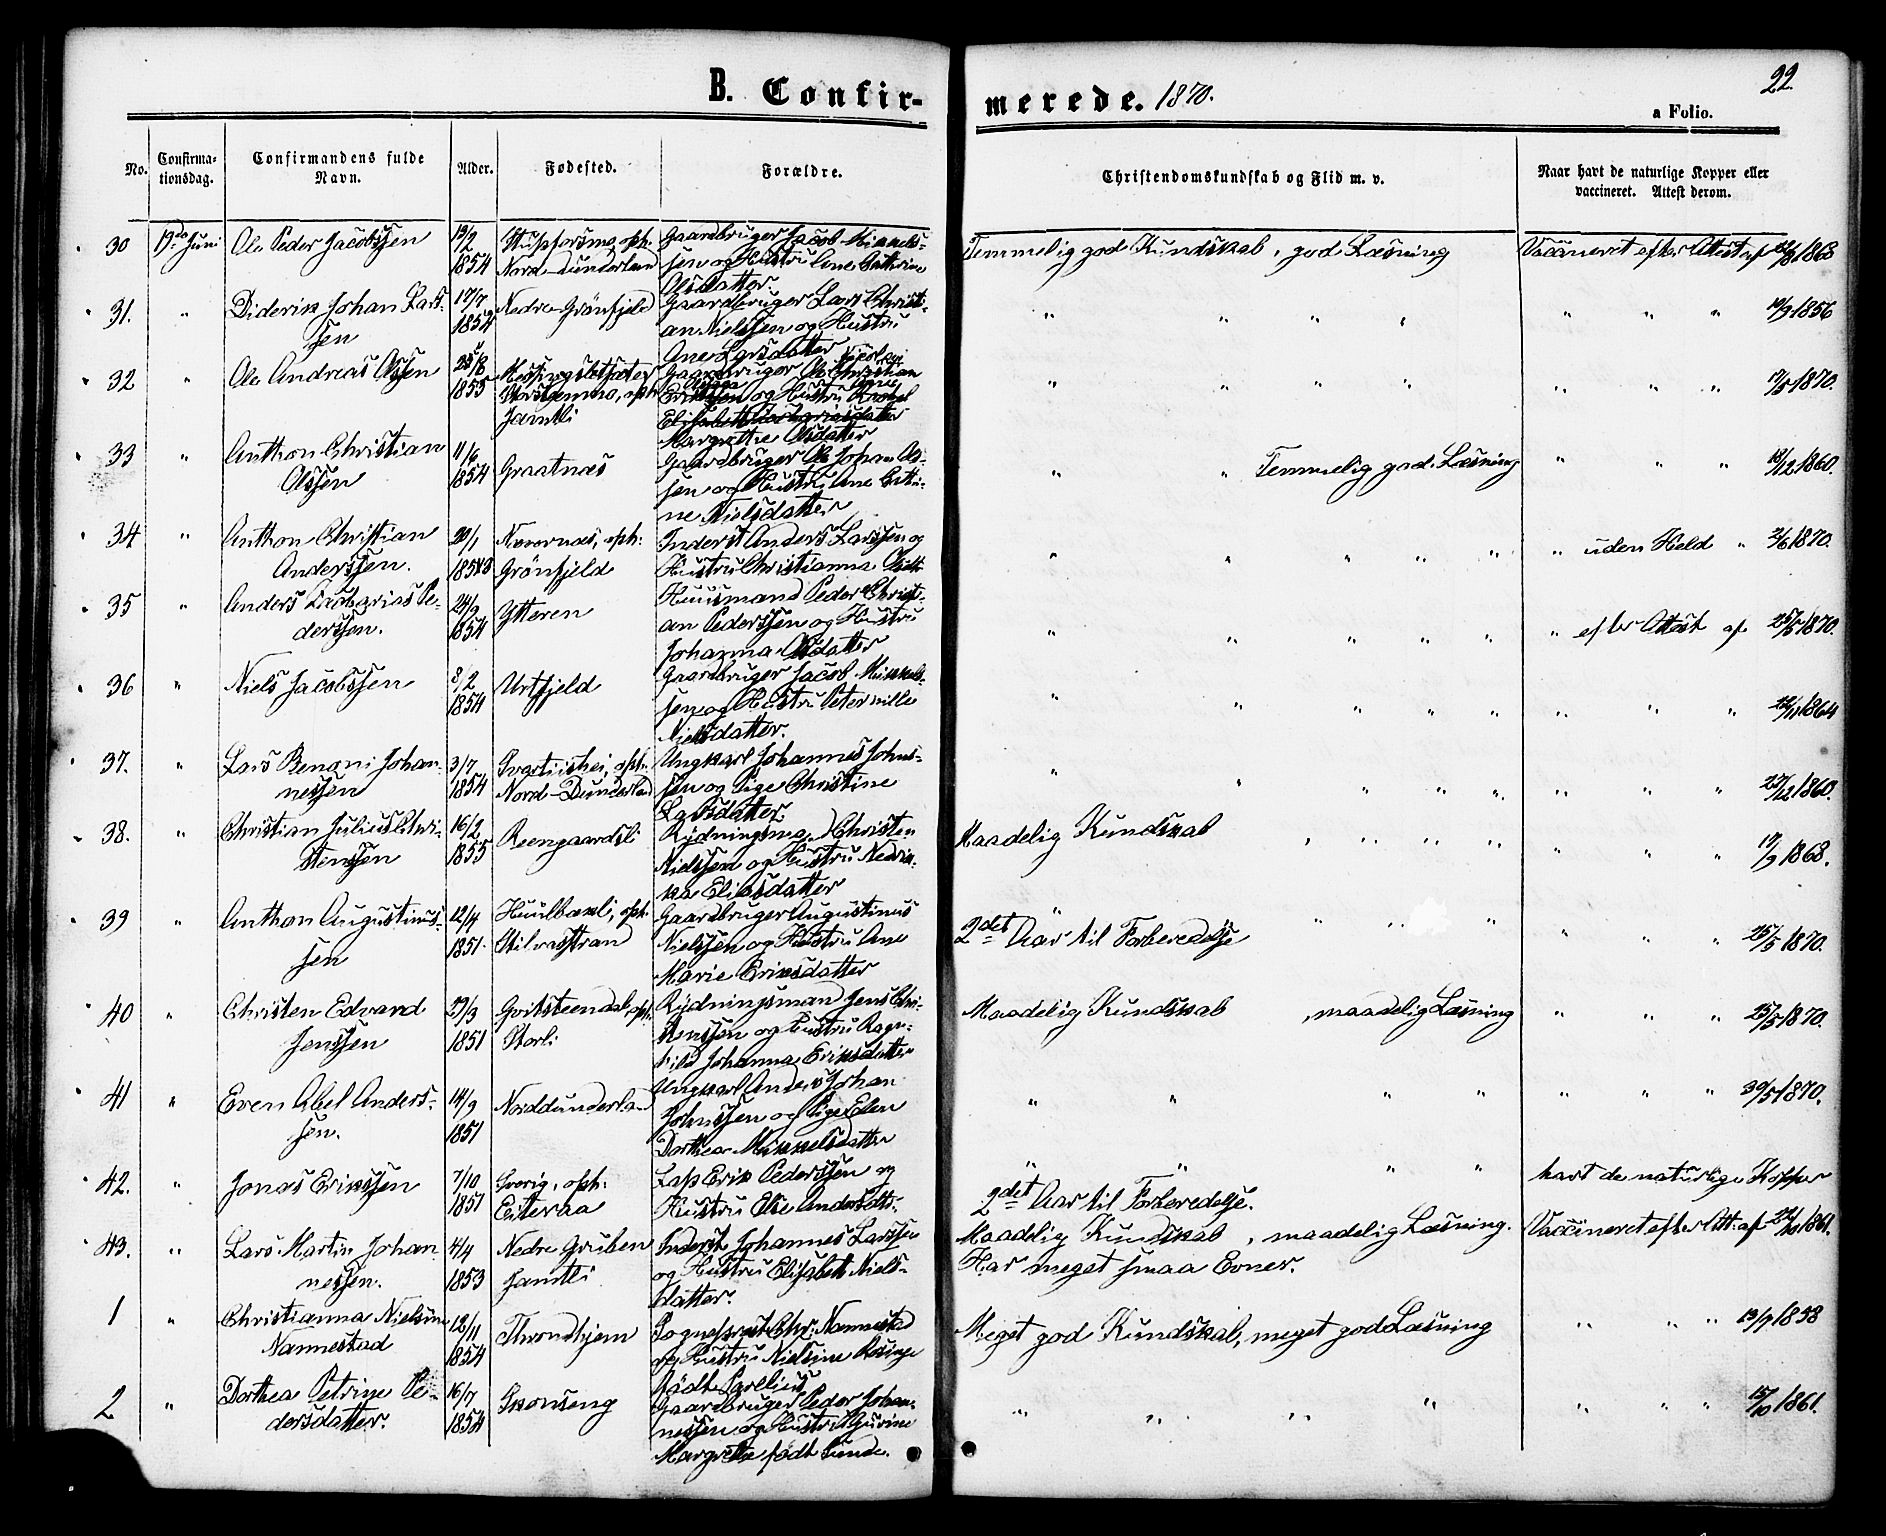 B. Confirmerede. 1870.
22
a Folio.
No.
Confirmationsdag.
Confirmandens fulde Navn.
Alder.
Fødested.
Forældre.
Christendomskundskab og Flid m. v.
Naar havt de naturlige Kopper eller vaccineret. Attest derom.
30 19de Juni Ole Peder Jacobssen 13/2 1854 Stupforsmo, oph. Nord-Dunderland Gaardbruger Jacob Mikkels-
sen og Hustru Ane Cathrine
Olsdatter.
Temmelig god Kundskab, god Læsning Vaccineret efter Attest af 1863
31. " Diderik Johan Lars-
sen 17/7 1854 Nedre-Grönfjeld Gaardbruger Lars Christi-
an Nielssen og Hustru
Ane Larsdatter
" " " " " " " 1856
32 " Ole Andreas Olssen 1855 oph. Jamtli Gaardbruger Ole Christian
Erikssen og Hustru
Margrethe Olsdatter
" " " " " " " 17/5 1870.
33 " Anthon Christian
Olssen 11/6 1854 Graatnæs Gaardbruger Ole Johan Ol-
sen og Hustru Ane Cathri-
ne Nielsdatter
" " Temmelig god Læsning " " " 18/12 1860.
34 " Anthon Christian
Anderssen. 20/1 Nævernæs, oph: Grönfjeld Inderst Anders Larssen og
Hustru Christianna
" " " " " " uden Held " 2/6 1870.
35 " Anders Zacharias Pe-
derssen. 24/9 1854 Ytteren Huusmand Peder Christi-
an Pederssen og Hustru
Johanna Olsdatter
" " " " " " efter Attest af 25/5 1870.
36 " Niels Jacobssen 8/2 1854 Urtfjeld Gaardbruger Jacob Mikkels-
sen og Hustru Peternille
Nielsdatter.
" " " " " " " " 1864
37. " Lars Benoni Johan-
nessen 3/7 1854 Svartishei, oph. Nord-Dunderland Ungkarl Johannes Johns-
sen og Pige Christine
Larsdatter.
" " " " " " " " 22/12 1860.
38. " Christian Julius Chri-
stenssen 16/2 1855 Reengaardsli Rydningsmand Christen
Nielssen og Hustru Nedrik-
ka Eliasdatter
Maadelig Kundskab, " " " " " " 17/9 1868.
39 " Anthon Augustinus-
sen 12/4 1851. oph. Stilvasstrand Gaardbruger Augustinus
Nielssen og Hustru Ane
Marie Eriksdatter
" " " "
2det Aar til Forberedelse " " " 25/5 1870.
40 " Christen Edvard
Jenssen 29/3 1851 oph. Storli Rydningsmand Jens Chri-
stenssen og Hustru Ragn-
hild Johanna Eriksdatter
Maadelig Kundskab, maadelig Læsning " " " 25/5 1870.
41 " Even Abel Anders-
sen. 14/9 1851 Norddunderland Ungkarl Anders Johan
Johnssen og Pige Elen
Dorthea Mikkelsdatter
" " " " " " " 30/5 1870.
42. " Jonas Erikssen 7/10 1851 Sverig, oph. Eiteraa Lap Erik Pederssen og
Hustru Else Andersdtr.
" " " "
2det Aar til Forberedelse. havt de naturlige Kopper
43. " Lars Martin Johan-
nessen. 4/4 1853 Nedre Gruben Jamtli Inderst Johannes Larssen
og Hustru Elisabeth Niels-
datter.
Maadelig Kundskab, maadelig Læsning. Vaccineret efter Att. af 1861.
Har meget smaa Evner.
1 " Christianna Nielsine
Nannestad 12/11 1854 Throndhjem Sogneprest Chr. Nannestad
og Hustru Nielsine Rosine
født Parelius
Meget god Kundskab, meget god Læsning " " " 13/9 1858
2 " Dorthea Petrine Pe-
dersdatter. 16/7 1854 Skonseng Gaardbruger Peder Johan-
nessen og Hustru Gurine
Margrethe født Sund.
" " " " " " " 15/10 1861.